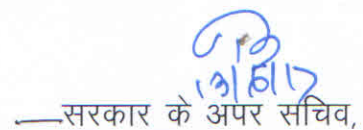 13/6/17
सरकार के अपर सचिव,